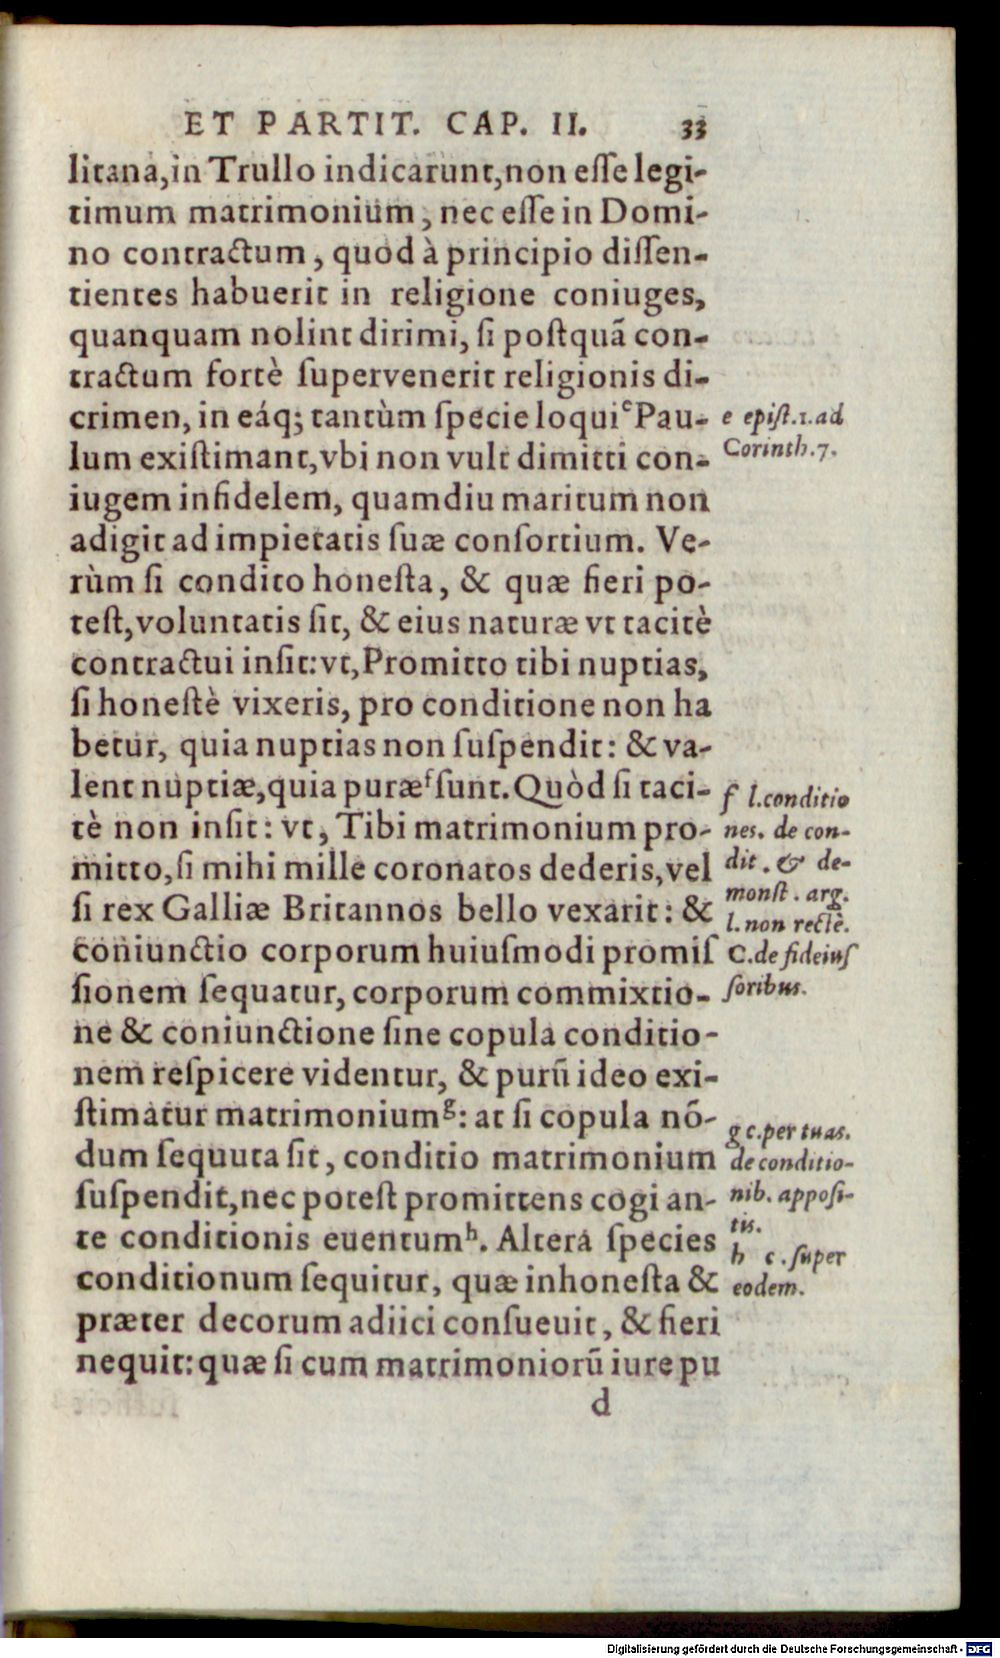 ET PARTIT. CAP. II. 33
litana, in Trullo indicarunt, non eſſe legi-
timum matrimonium, nec eſſe in Domi-
no contractum, quod à principio diſſen-
tientes habuerit in religione coniuges,
quanquam nolint dirimi, ſi poſtquã con-
tractum fortè ſupervenerit religionis di-
crimen, in eáq; tantùm ſpecie loquiᵉ Pau-
lum exiſtimant, vbi non vult dimitti con-
iugem infidelem, quamdiu maritum non
adigit ad impietatis ſuæ conſortium. Ve-
rùm ſi condito honeſta, & quæ fieri po-
teſt, voluntatis ſit, & eius naturæ vt tacitè
contractui inſit: vt, Promitto tibi nuptias,
ſi honeſtè vixeris, pro conditione non ha
betur, quia nuptias non ſuſpendit: & va-
lent nuptiæ, quia puræᶠ ſunt. Quòd ſi taci-
tè non inſit: vt, Tibi matrimonium pro-
mitto, ſi mihi mille coronatos dederis, vel
ſi rex Galliæ Britannos bello vexarit: &
coniunctio corporum huiuſmodi promiſ
ſionem ſequatur, corporum commixtio-
ne & coniunctione ſine copula conditio-
nem reſpicere videntur, & purũ ideo exi-
ſtimatur matrimoniumᵍ: at ſi copula nõ-
dum ſequuta ſit, conditio matrimonium
ſuſpendit, nec poteſt promittens cogi an-
te conditionis euentumʰ. Altera ſpecies
conditionum ſequitur, quæ inhoneſta &
præter decorum adiici conſueuit, & fieri
nequit: quæ ſi cum matrimoniorũ iure pu
d
e epiſt. 1. ad
Corinth. 7.
f l. conditio
nes. de con-
dit. & de-
monſt. arg.
l. non rectè.
C. de fideiuſ
ſoribus.
g c. per tuas.
de conditio-
nib. appoſi-
tis.
h c. ſuper
eodem.
Digitalisierung gefördert durch die Deutsche Forschungsgemeinschaft - DFG